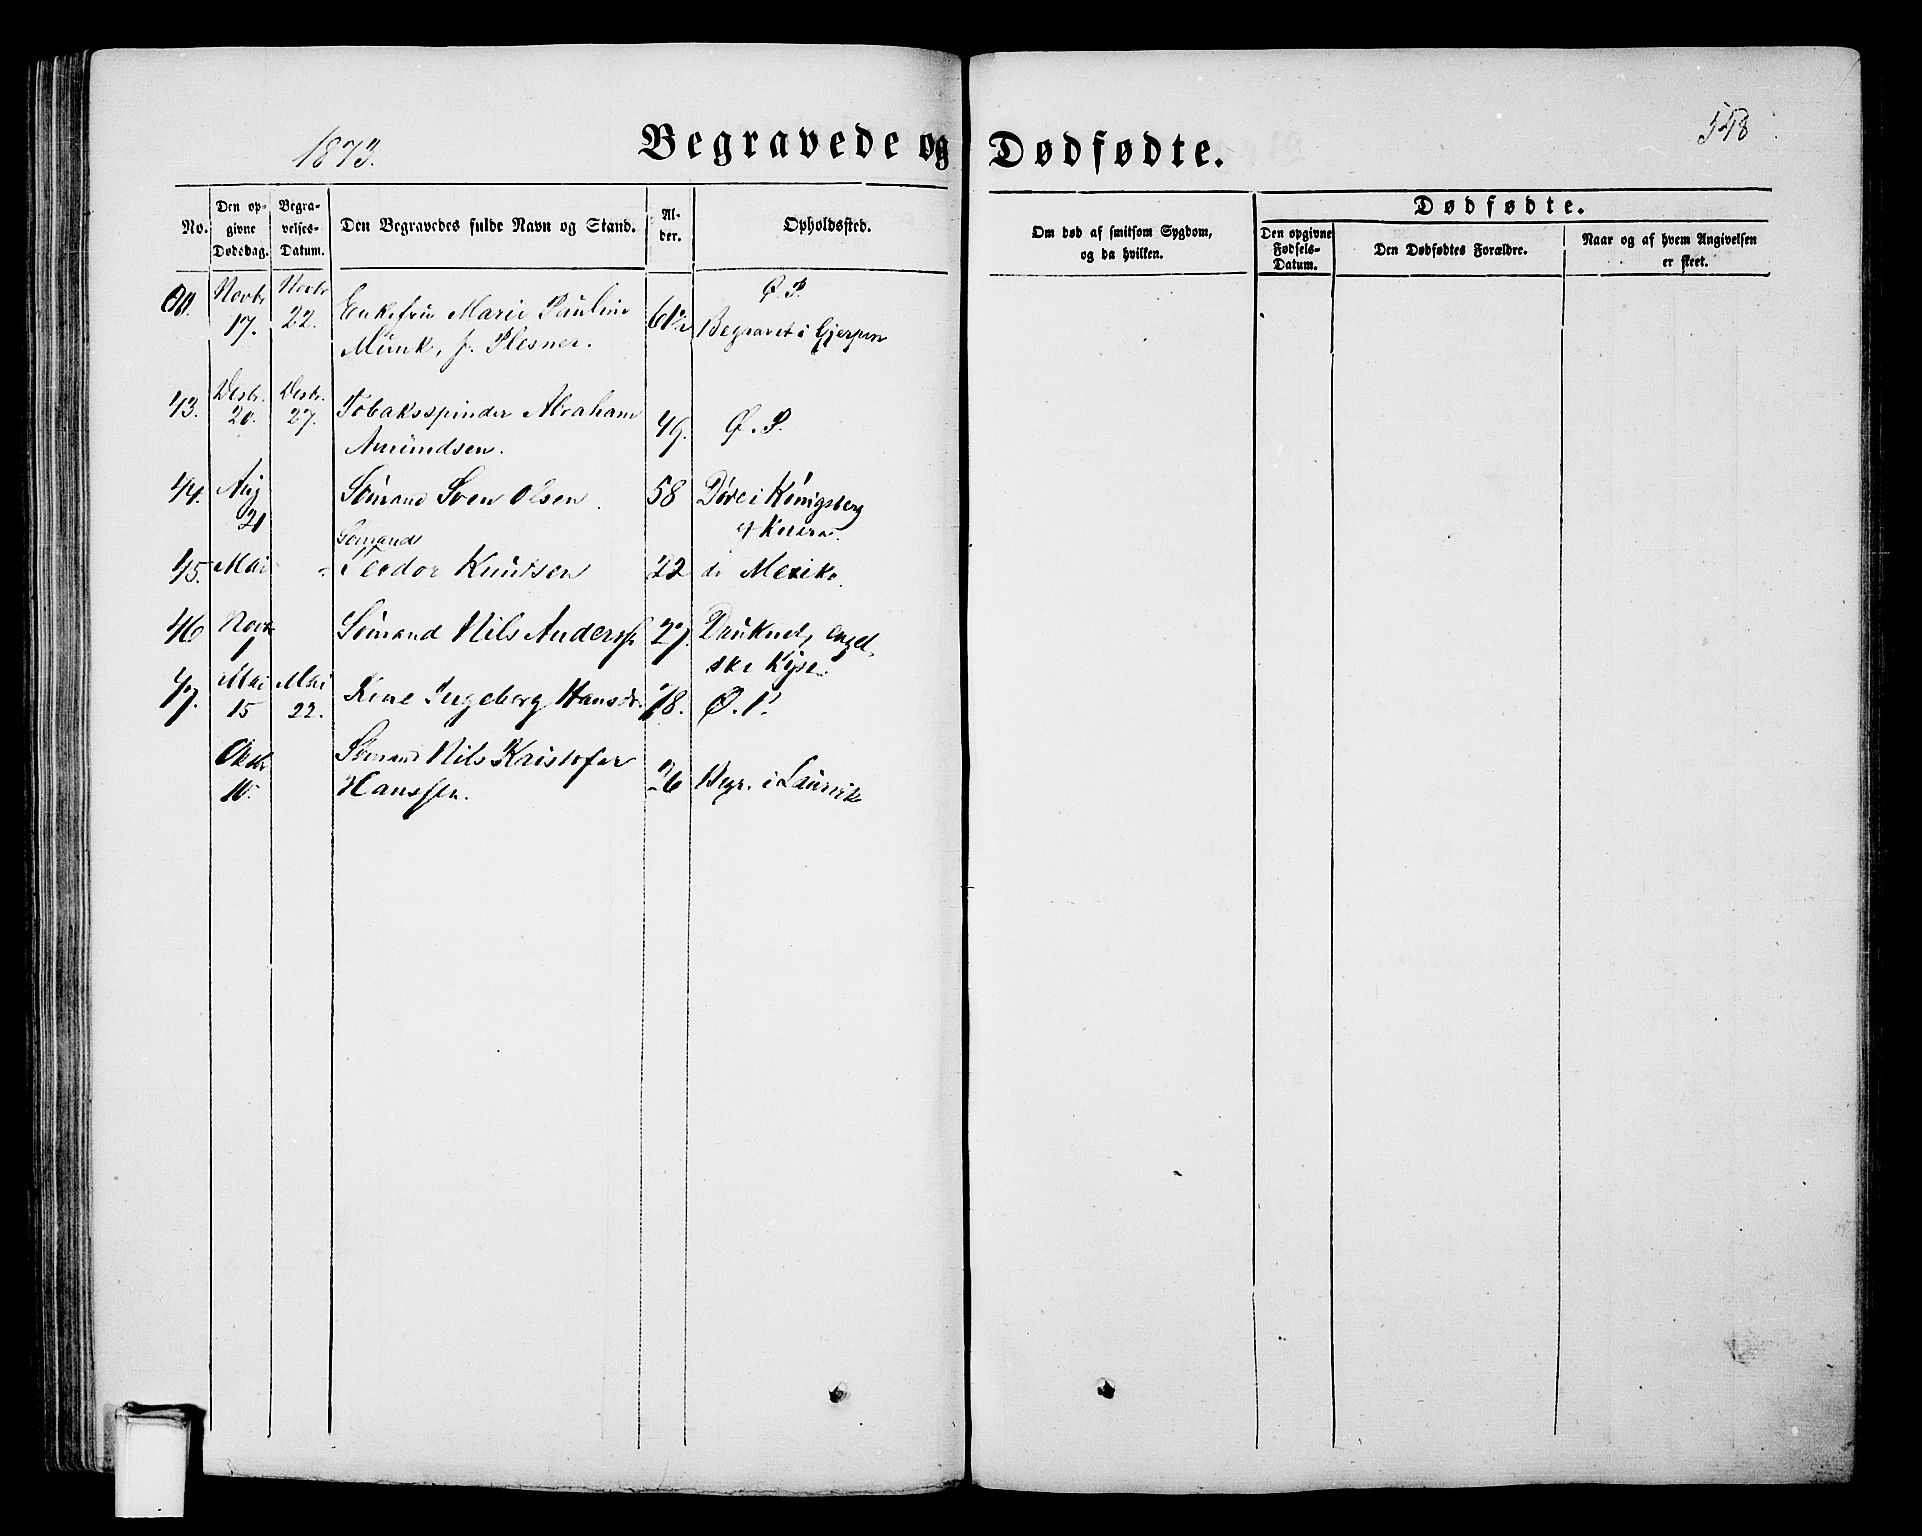 1873.
Begravede og Dødfødte.
548
No.
Den opgivne Dødsdag.
Begravelses-Datum.
Den Begravedes fulde Navn og Stand.
Alder.
Opholdssted.
Om død af smitsom Sygdom, og da hvilken.
Dødfødte.
Den opgivne Fødsels-Datum.
Den Dødfødtes Forældre.
Naar og af hvem Angivelsen er skeet.
Novbr 17. Novbr 22. Enkefru Marie Pauline
Munk, f. Plesner. 61½ Ø. P.
Begravet i Gjerpen
43. Desbr. 20. Desbr. 27. Tobaksspinder Abraham
Amundsen. 49. Ø. P.
44. Aug 21 Sömand Sven Olsen. 58 Döde i Königsberg
af Kolera.
45. Mai - Sömand
Teodor Knudsen 22 di Mexiko.
46 Novbr 7 Sömand Nils Anders 27. Druknet, engel
ske Kyst.
47. Mai 15 Mai 22. Kone Ingeborg Hansd. 78. Ø. P.
Oktbr 10. Sömand Nils Kristofer
Hanssen. 26 Begr. i Laurvik